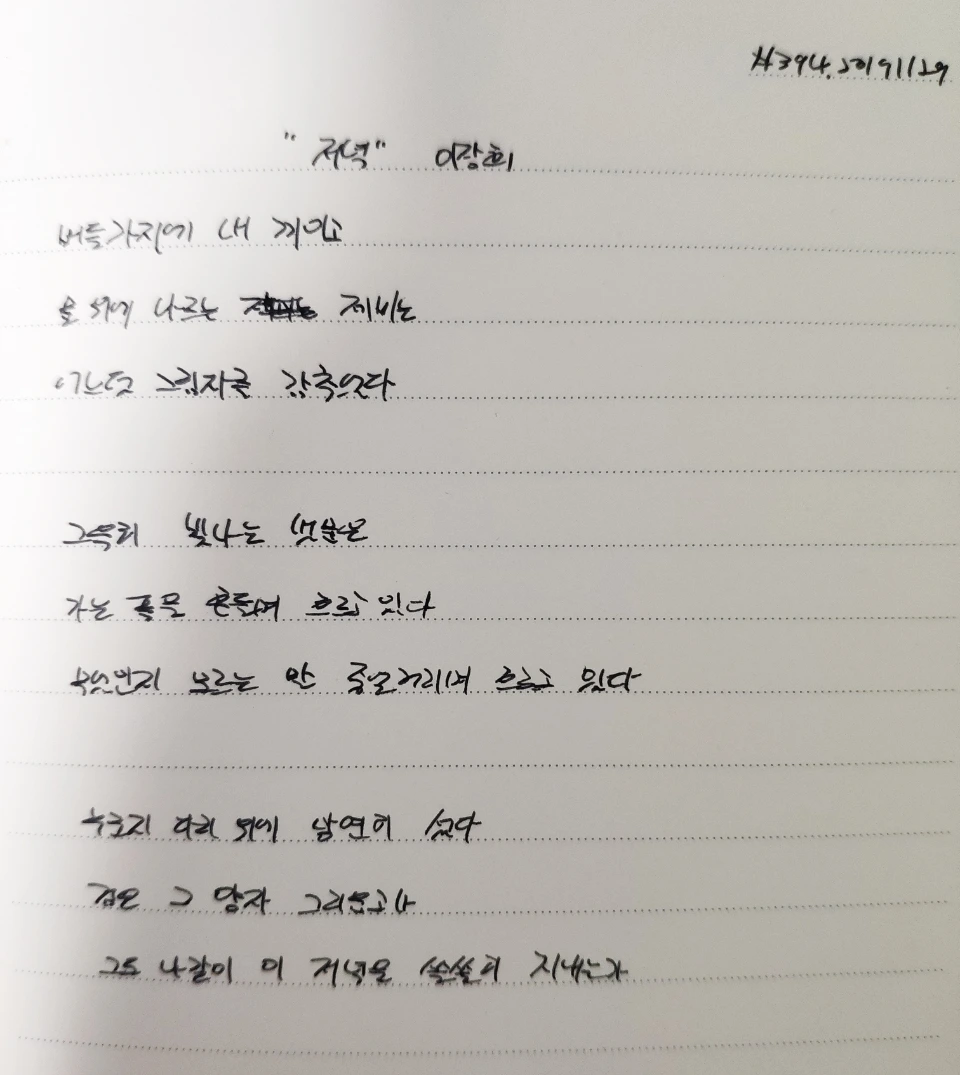 #394. 20191129
"저녁" 이장희
버들가지에 내 끼이고
물 위에 나르는 제비는
어느덧 그림자를 감추었다
그윽히 빛나는 냇물은
가는 풀을 흔들며 흐르고 있다
무엇인지 모르는 말 중얼거리며 흐르고 있다
누군지 다리 위에 남연히 섰다
검은 그 양자 그리웁고나
그도 나같이 이 저녁을 쓸쓸히 지내는가